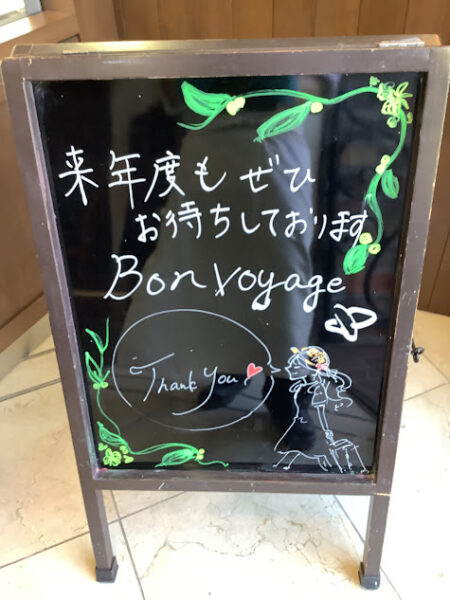 来年度もぜひ
お待ちしております
Bon Voyage
Thank you